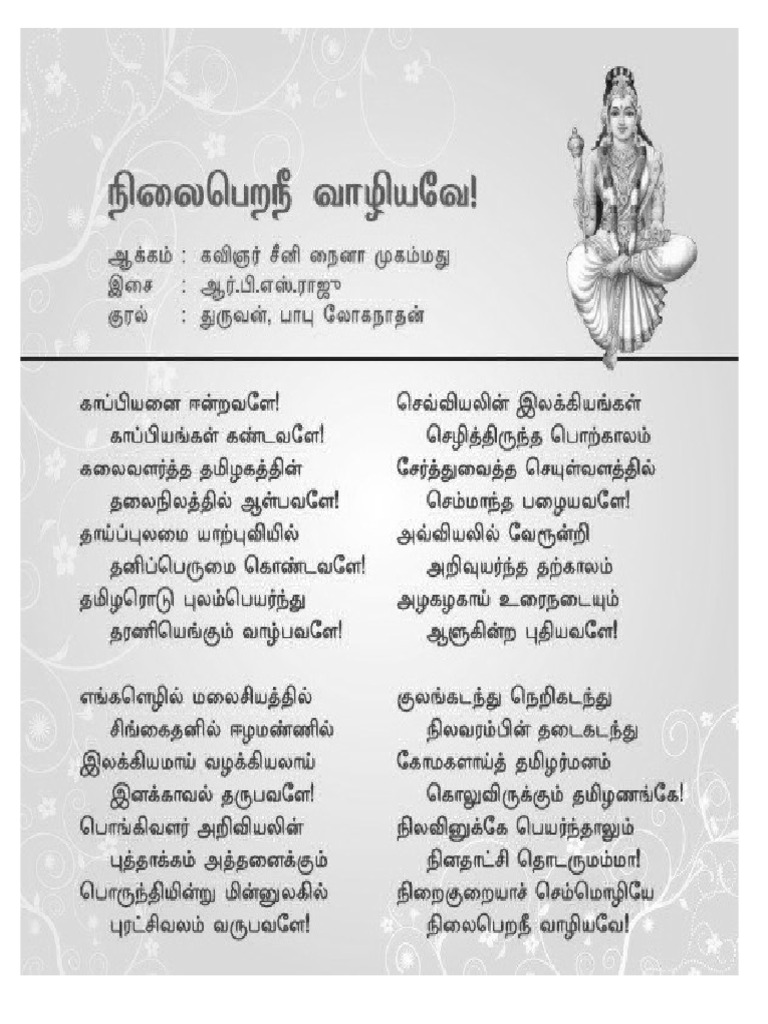 நிலைபெறநீ வாழியவே!
ஆக்கம் : கவிஞர் சீனி நைனா முகம்மது
இசை : ஆர்.பி.எஸ்.ராஜு
குரல் : துருவன், பாபு லோகநாதன்
காப்பியனை ஈன்றவளே!
காப்பியங்கள் கண்டவளே!
கலைவளர்த்த தமிழகத்தின்
தலைநிலத்தில் ஆள்பவளே!
தாய்ப்புலமை யாற்புவியில்
தனிப்பெருமை கொண்டவளே!
தமிழரொடு புலம்பெயர்ந்து
தரணியெங்கும் வாழ்பவளே!
எங்களெழில் மலைசியத்தில்
சிங்கைதனில் ஈழமண்ணில்
இலக்கியமாய் வழக்கியலாய்
இனக்காவல் தருபவளே!
பொங்கிவளர் அறிவியலின்
புத்தாக்கம் அத்தனைக்கும்
பொருந்தியின்று மின்னுலகில்
புரட்சிவலம் வருபவளே!
செவ்வியலின் இலக்கியங்கள்
செழித்திருந்த பொற்காலம்
சேர்த்துவைத்த செயுள்வளத்தில்
செம்மாந்த பழையவளே!
அவ்வியலில் வேரூன்றி
அறிவுயர்ந்த தற்காலம்
அழகழகாய் உரைநடையும்
ஆளுகின்ற புதியவளே!
குலங்கடந்து நெறிகடந்து
நிலவரம்பின் தடைகடந்து
கோமகளாய்த் தமிழர்மனம்
கொலுவிருக்கும் தமிழணங்கே!
நிலவினுக்கே பெயர்ந்தாலும்
நினதாட்சி தொடருமம்மா!
நிறைகுறையாச் செம்மொழியே
நிலைபெறநீ வாழியவே!